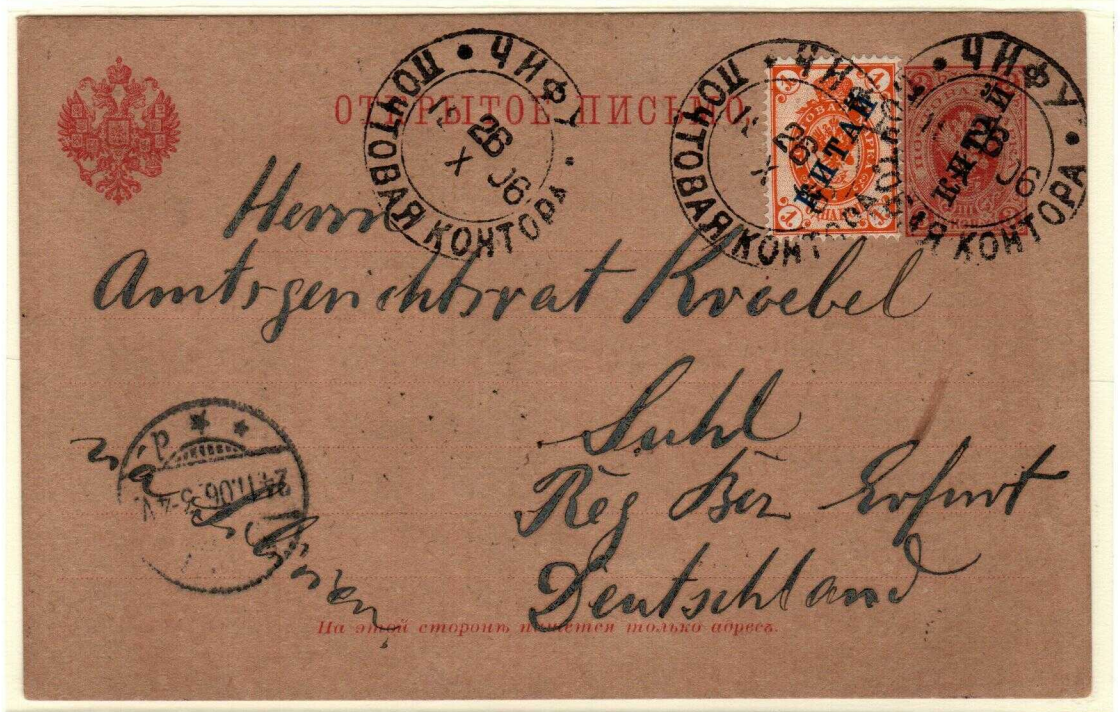 ОТКРЫТОЕ ПИСЬМО
ЧИФУ ПОЧТОВАЯ КОНТОРА
26
X 06
ЧИФУ ПОЧТОВАЯ КОНТОРА
ЧИФУ КОНТОРА
06
КИТАЙ
1
КИТАЙ
Herrn
Amtsgerichtsrat Kroebel
Suhl
Reg Bez Erfurt
Deutschland
24.11.06.3-4
На этой сторонѣ пишется только адресъ.